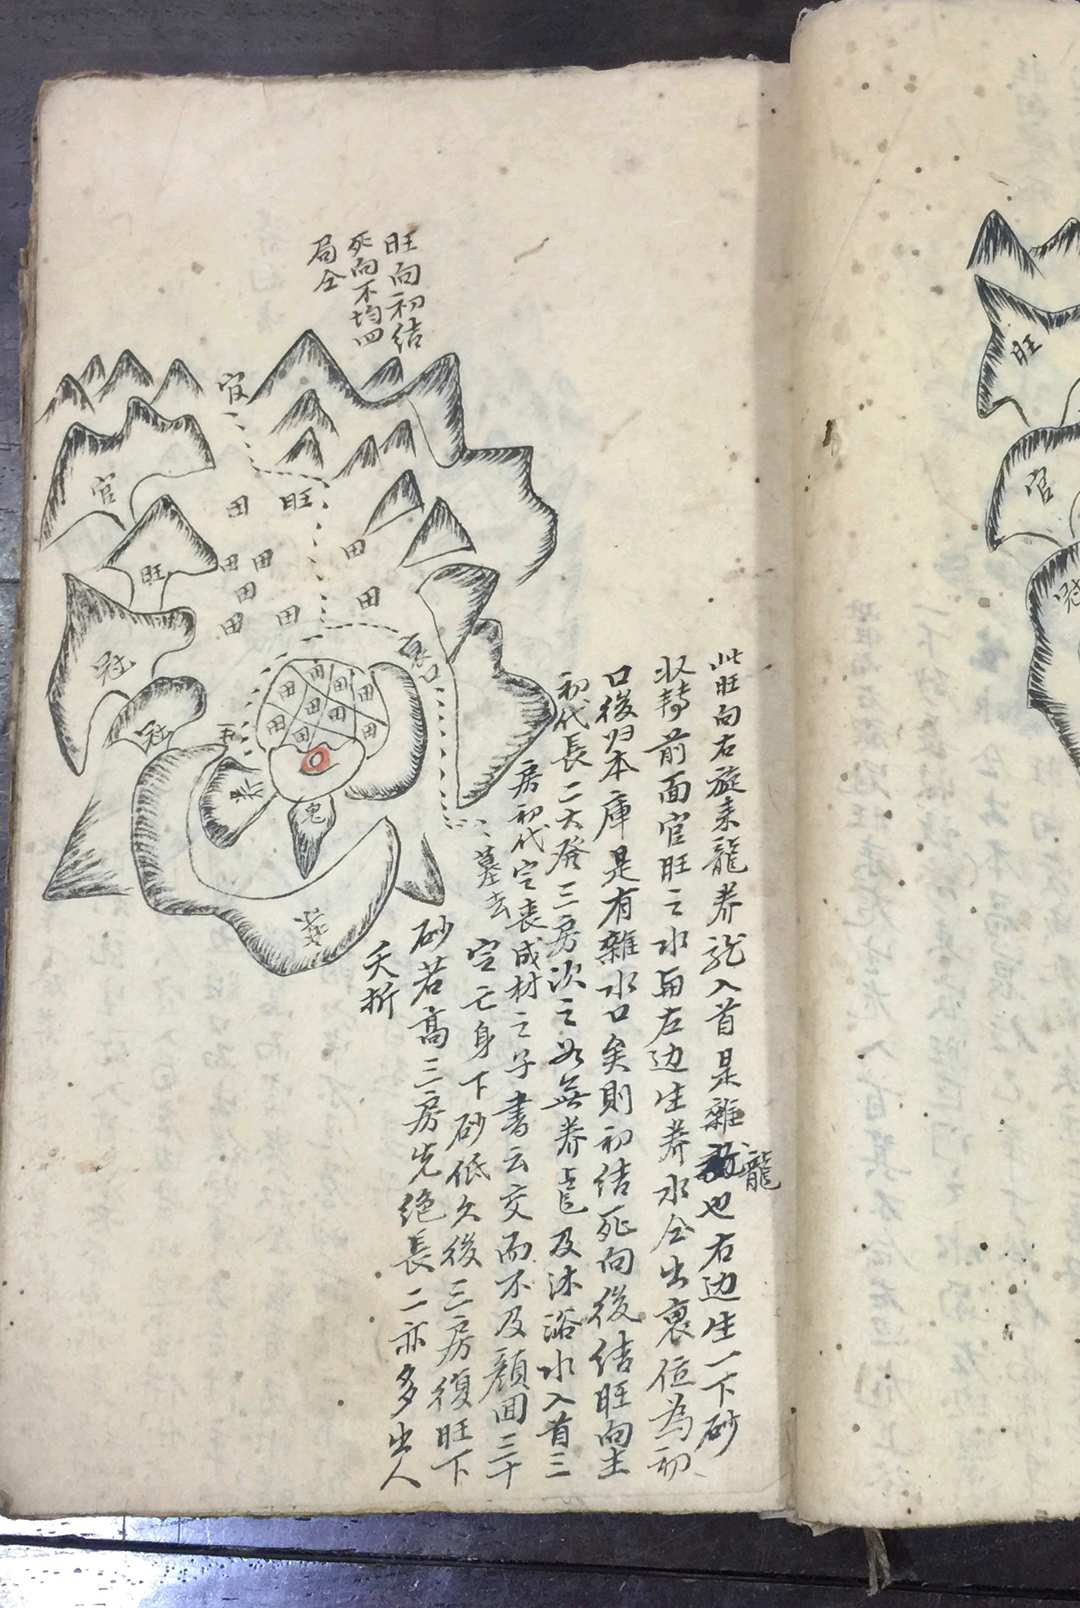 旺向初结
死向不均四
局仝
官
官
田
旺
田
旺
田
田
田
田
田
田
冠
冠
田
田
田
田
田
田
田
田
田
养
鬼
墓去
此旺向右旋来龍养龙入首是雜龍也右边生一下砂
收轉前面官旺之水與左边生养水仝出衰位為初
口後归本庫是有雜水口矣則初结死向後结旺向主
初代長二大發三房次之必無养㐌及沐浴水入首三
房初代定丧成材之子書云交而不及顏囬三十
定亡身下砂低久後三房復旺下
砂若高三房先绝長二亦多出人
夭折
旺
官
冠